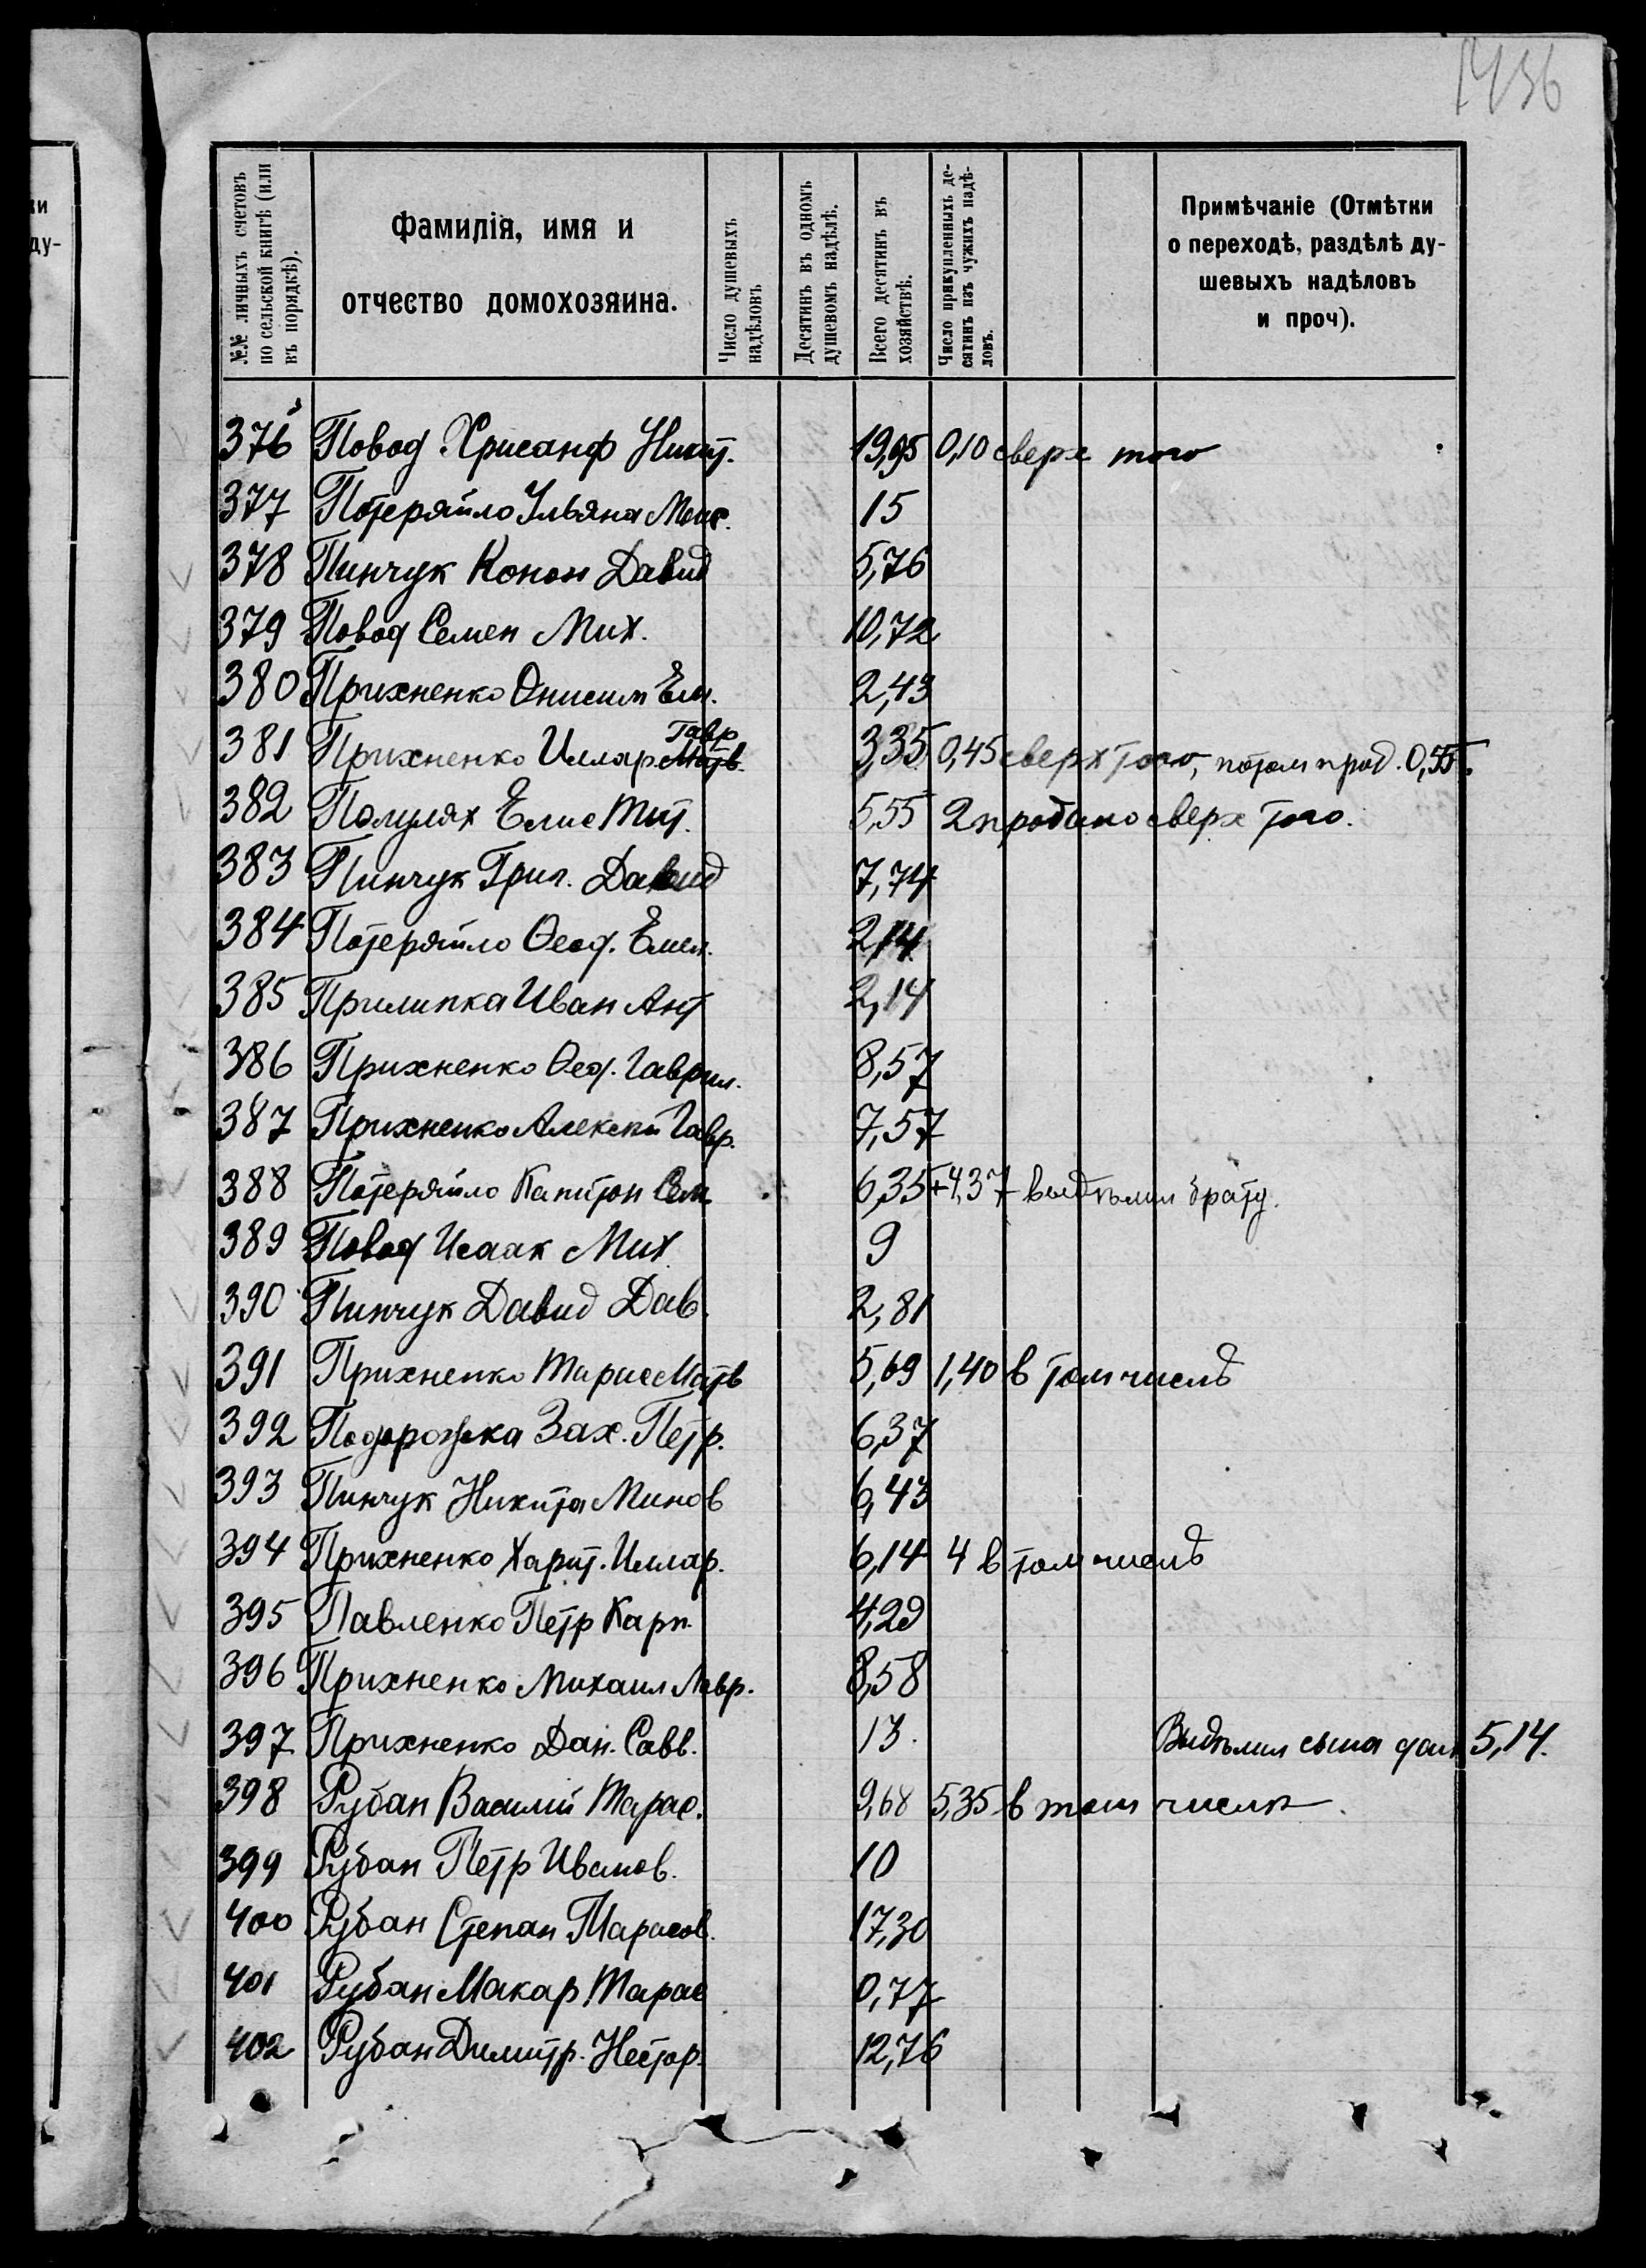 1436
ки
ду-
№№ личныхъ счетовъ по сельской книгѣ (или въ порядкѣ).
Фамилія, имя и отчество домохозяина.
Число душевыхъ надѣловъ
Десятинъ въ одномъ душевомъ надѣлѣ.
Всего десятинъ въ хозяйствѣ.
Число прикупленныхъ десятинъ изъ чужихъ надѣловъ.
Примѣчаніе (Отмѣтки о переходѣ, раздѣлѣ душевыхъ надѣловъ и проч).
376 Повод Хрисанф Никит. 19,95 0,10 сверх того
377 Потеряйло Ульяна Мик. 15
378 Пинчук Конон Давид 5,76
379 Повод Семен Мих. 10,72
380 Прихненко Онисим Ем. 2,43
381 Прихненко Иллар. Матв. Гавр 3,35 0,45 сверх того, потом прод. 0,55.
382 Полулях Елис Тит. 5,55 2 продано сверх того.
383 Пинчук Григ. Давид 7,74
384 Потеряйло Ѳеод. Емел. 2,14
385 Прилипка Иван Ант 2,14
386 Прихненко Ѳеод. Гаврил. 8,57
387 Прихненко Алексѣй Гавр. 7,57
388 Потеряйло Капитон Сем. 6,35 +4,37 выдѣлил брату.
389 Повод Исаак Мих. 9
390 Пинчук Давид Дав. 2,81
391 Прихненко Тарас Матв 5,69 1,40 в том числѣ
392 Подорожка Зах. Петр. 6,37
393 Пинчук Никита Минов 6,43
394 Прихненко Харит. Иллар. 6,14 4 в том числѣ
395 Павленко Петр Карп. 4,29
396 Прихненко Михаил Лавр. 8,58
397 Прихненко Дан. Савв. 13. Выдѣлил сына дал 5,14.
398 Рубан Василий Тарас. 9,68 5,35 в том числѣ.
399 Рубан Петр Иванов. 10
400 Рубан Степан Тарасов. 17,30
401 Рубан Макар Тарас 0,77
402 Рубан Димитр. Нестор. 12,76